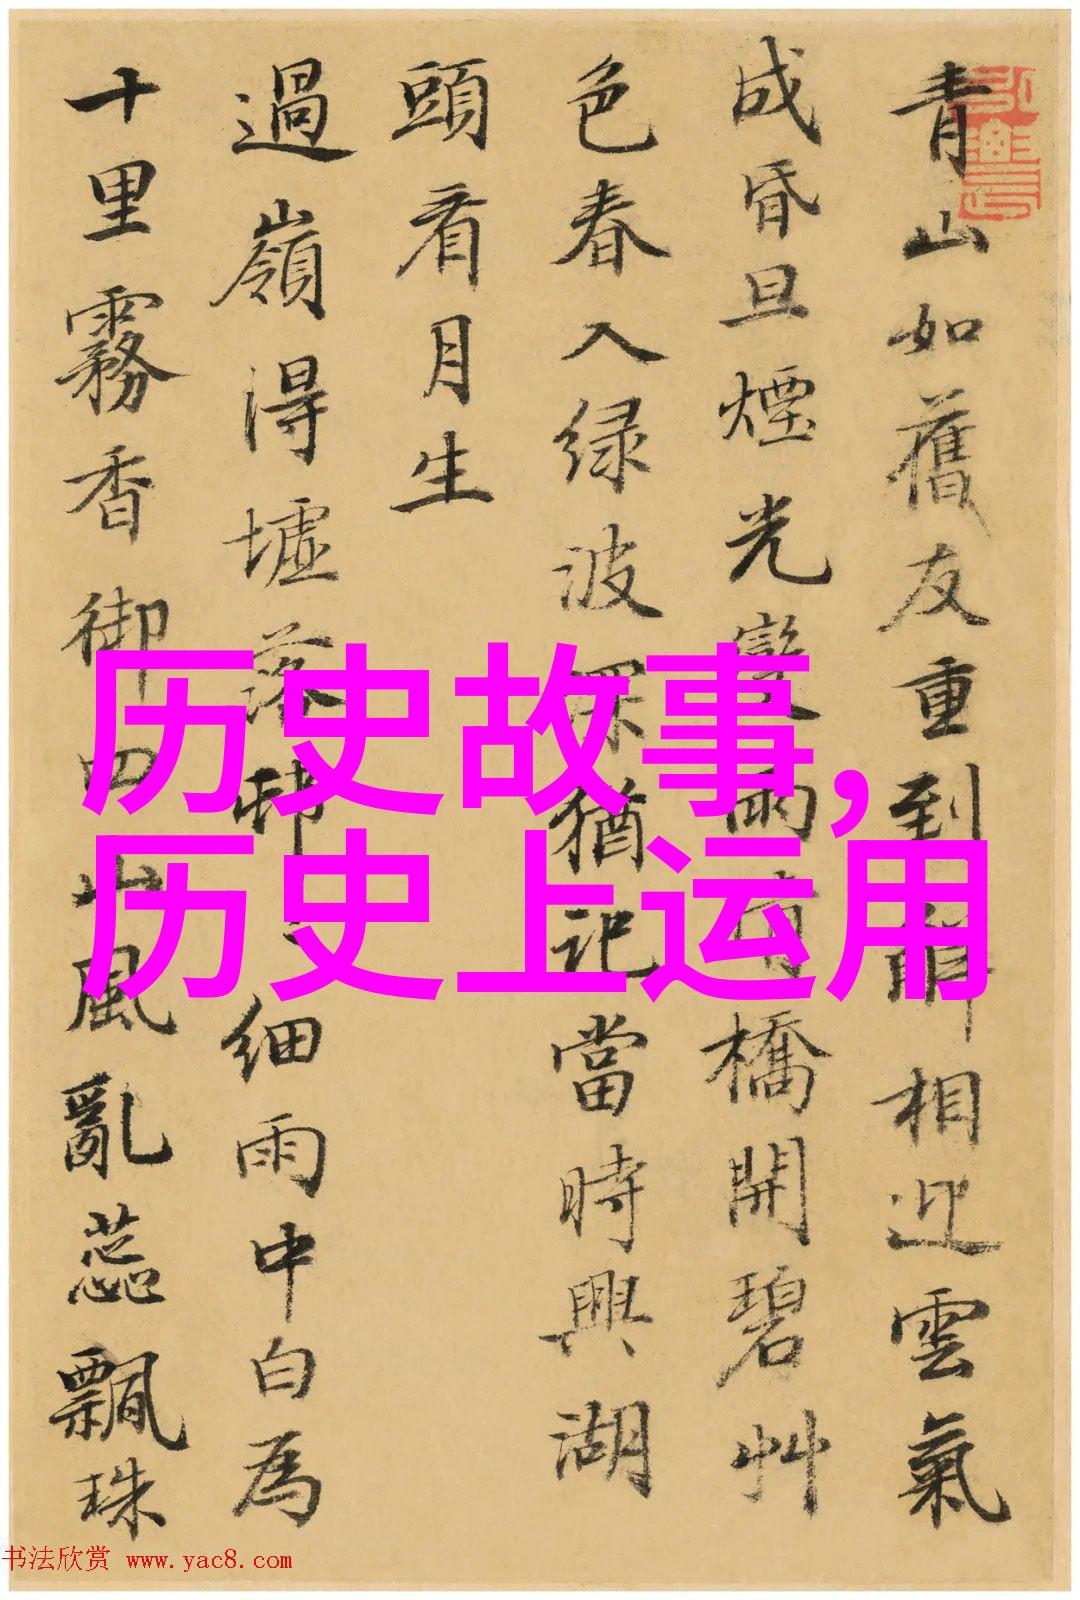 青山如舊友重到解相迎雲氣
成昏旦煙光變雨晴橋開碧艸
色春入绿波深猶記當時興湖
頭看月生
過嶺得墟落邨〻細雨中白為
十里霧香御四山風亂蕊飄珠
历史故事,
历史上运用
书法欣赏 www.yac8.com